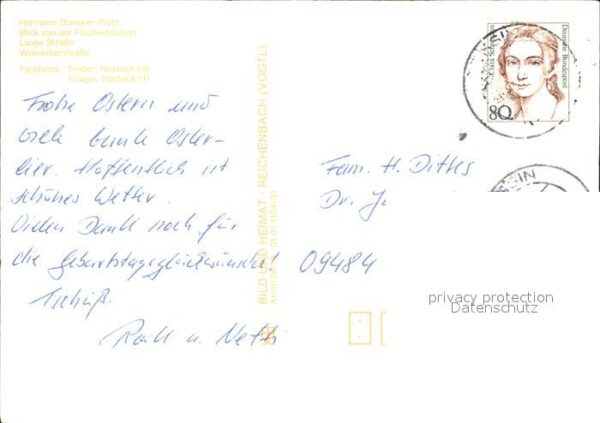 Hermann-Duncker-Platz
Blick von der Fischerbastion
Lange Straße
Wokrenterstraße
Farbfotos: Treder, Rostock (3)
Krüger, Rostock (1)
Frohe Ostern und
viele bunte Oster-
eier. Hoffentlich ist
schönes Wetter.
Vielen Dank noch für
die Geburtstagsglückwünsche!
Tschüß.
u.
BILD UND HEIMAT · REICHENBACH (VOGTL)
Clara Schumann
Deutsche Bundespost
80
Fam. H. Dittes
Dr. J
09484
privacy protection
Datenschutz